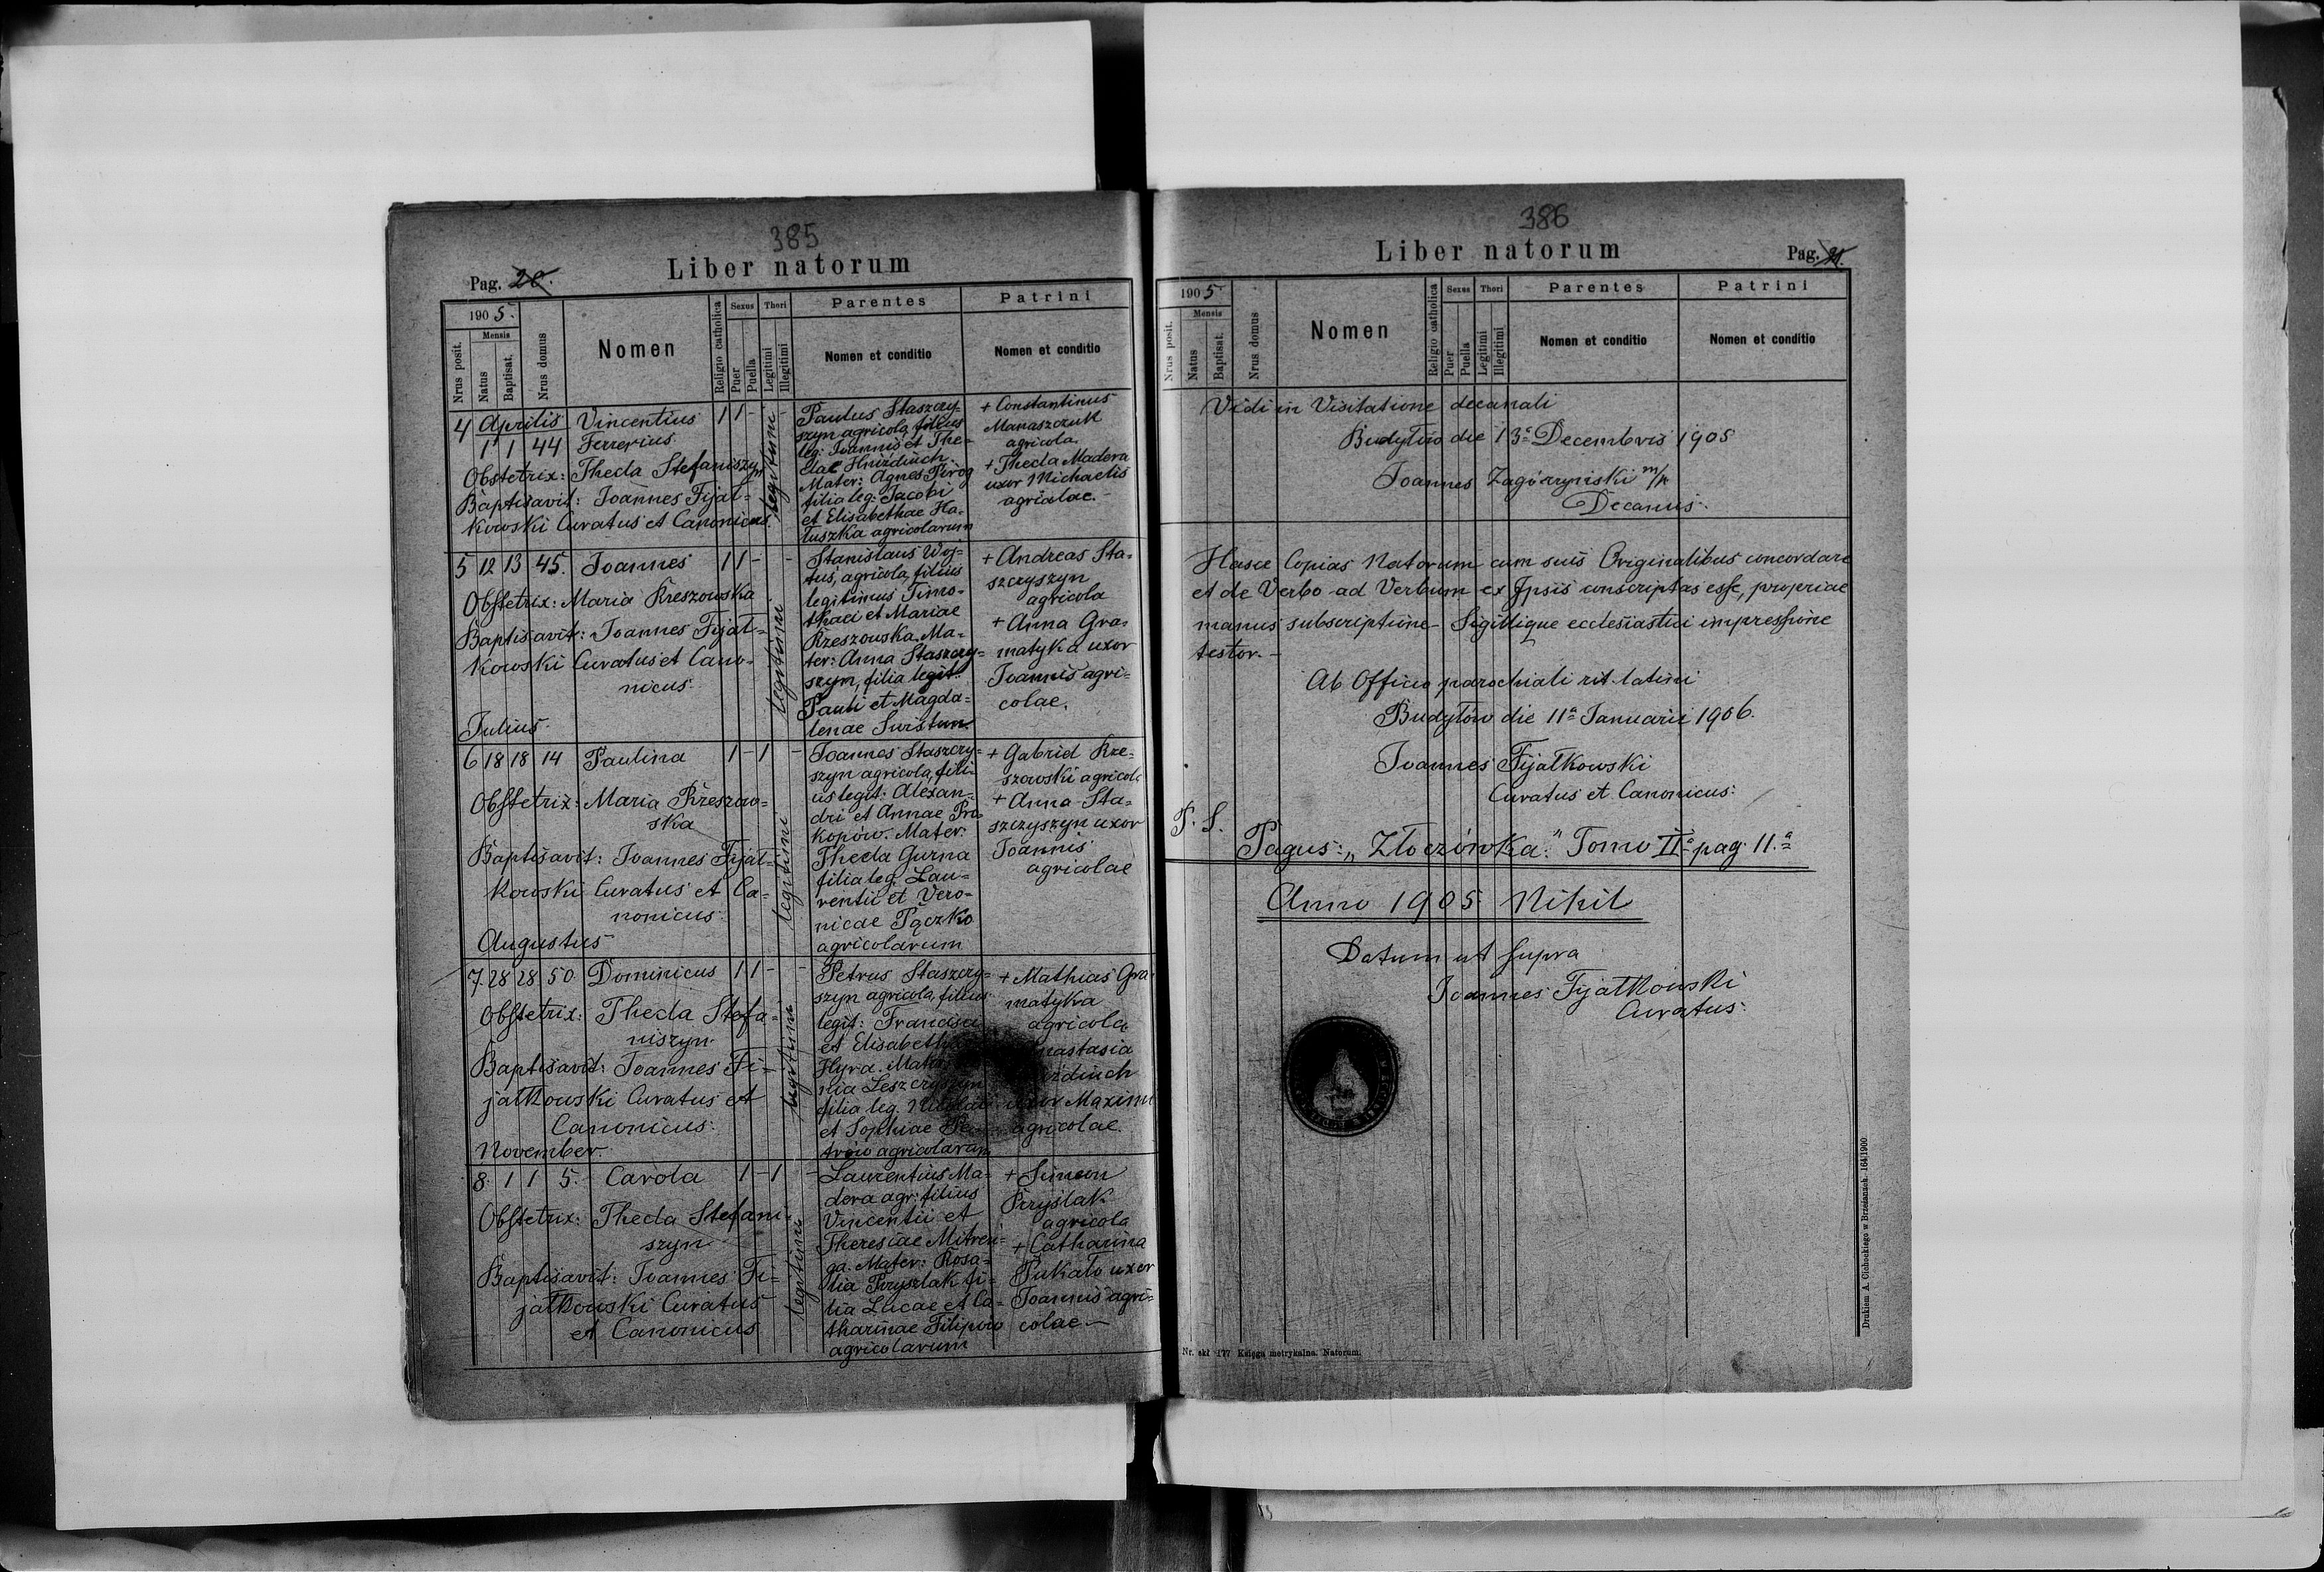 385
Liber natorum
Pag. 20.
190 5.
Nrus posit.
Mensis
Natus
Baptisat.
Nrus domus
Nomen
Religio catholica
Sexus
Puer
Puella
Thori
Legitimi
Illegitimi
Parentes
Nomen et conditio
Patrini
Nomen et conditio
4 Aprilis Vincentius 1 1 - -
1 1 44 Ferrerius
Obstetrix: Thecla Stefaniszyn
Baptisavit: Joannes Fijał=
kowski Curatus et Canonicus.
legitimi
Paulus Staszczy=
szyn agricola, filius
leg: Joannis et The=
clae Hnizdiuch.
Mater: Agnes Pirog
filia leg: Jacobi
et Elisabethae Ha=
łuszka agricolarum
+ Constantinus
Manaszczuk
agricola.
+ Thecla Madera
uxor Michaelis
agricolae.-
5 12 13 45. Joannes 1 1 - -
Obstetrix: Maria Kreszowska
Baptisavit: Joannes Fijał=
kowski Curatus et Cano=
nicus.
legitimi
Julius.
Stanislaus Woj=
tus, agricola, filius
legitimus Timo=
thaei et Mariae
Kreszowska. Ma=
ter: Anna Staszczy=
szyn, filia legit:
Pauli et Magda=
lenae
+ Andreas Sta=
szczyszyn
agricola
+ Anna Gra=
matyka uxor
Joannis agri=
colae.
6 18 18 14 Paulina 1 - 1 -
Obstetrix: Maria Kreszow=
ska
Baptisavit: Joannes Fijał=
kowski Curatus et Ca=
nonicus.
legitimi
Augustus
Joannes Staszczy=
szyn agricola, fili=
us legit: Alexan=
dri et Annae Pro
kopów. Mater:
Thecla Gurna
filia leg. Lau=
rentii et Vero=
nicae Pączko
agricolarum
+ Gabriel Kre=
szowski agricola
+ Anna Sta=
szczyszyn uxor
Joannis
agricolae
7. 28 28 50 Dominicus 1 1 - -
Obstetrix: Thecla Stefa=
niszyn
Baptisavit: Joannes Fi=
jałkowski Curatus et
Canonicus.
legitimi
November.
Petrus Staszczy=
szyn agricola, filius
legit: Francisci
et Elisabeth
Hyra. Mater
nia Leszczyszyn
filia leg. Nicolai
et Sophiae
trów agricolarum
+ Mathias Gra
matyka
agricola
nastasia
zdiuch
uxor Maximi
agricolae.
8. 1 1 5. Carola 1 - 1 -
Obstetrix: Thecla Stefani=
szyn
Baptisavit: Joannes Fi=
jałkowski Curatus
et Canonicus
legitimi
Laurentius Ma=
dera agr: filius
Vincentii et
Theresiae Mitren=
ga. Mater: Rosa=
lia Pryszlak fi=
lia Lucae et Ca=
tharinae Filipów
agricolarum
+ Simeon
Pryślak
agricola
+ Catharina
Pukało uxor
Joannis agri=
colae-
386
Liber natorum
Pag. 21.
190 5
Nrus posit.
Mensis
Natus
Baptisat.
Nrus domus
Nomen
Religio catholica
Sexus
Puer
Puella
Thori
Legitimi
Illegitimi
Parentes
Nomen et conditio
Patrini
Nomen et conditio
Vidi in Visitatione decanali
Budyłów die 13a Decembris 1905
Joannes Zagórzyniski m/p
Decanus.
Hasce Copias Natorum cum suis Originalibus concordare
et de Verbo ad Verbum ex Ipsis conscriptas esse, propriae
manus subscriptione- Sigillique ecclesiastici impressione
testor.-
Ab Officio parochiali rit. latini
Budyłów die 11a Januarii 1906.
Joannes Fijałkowski
Curatus et Canonicus.
P. S.
Pagus: „Złoczówka." Tomo IIo pag. 11.a
Anno 1905 Nihil
Datum ut supra
Joannes Fijałkowski
Curatus.
Nr. skł 177 Księga metrykalna. Natorum.
Drukiem A. Cichockiego w Brzeżanach. 164|1900.